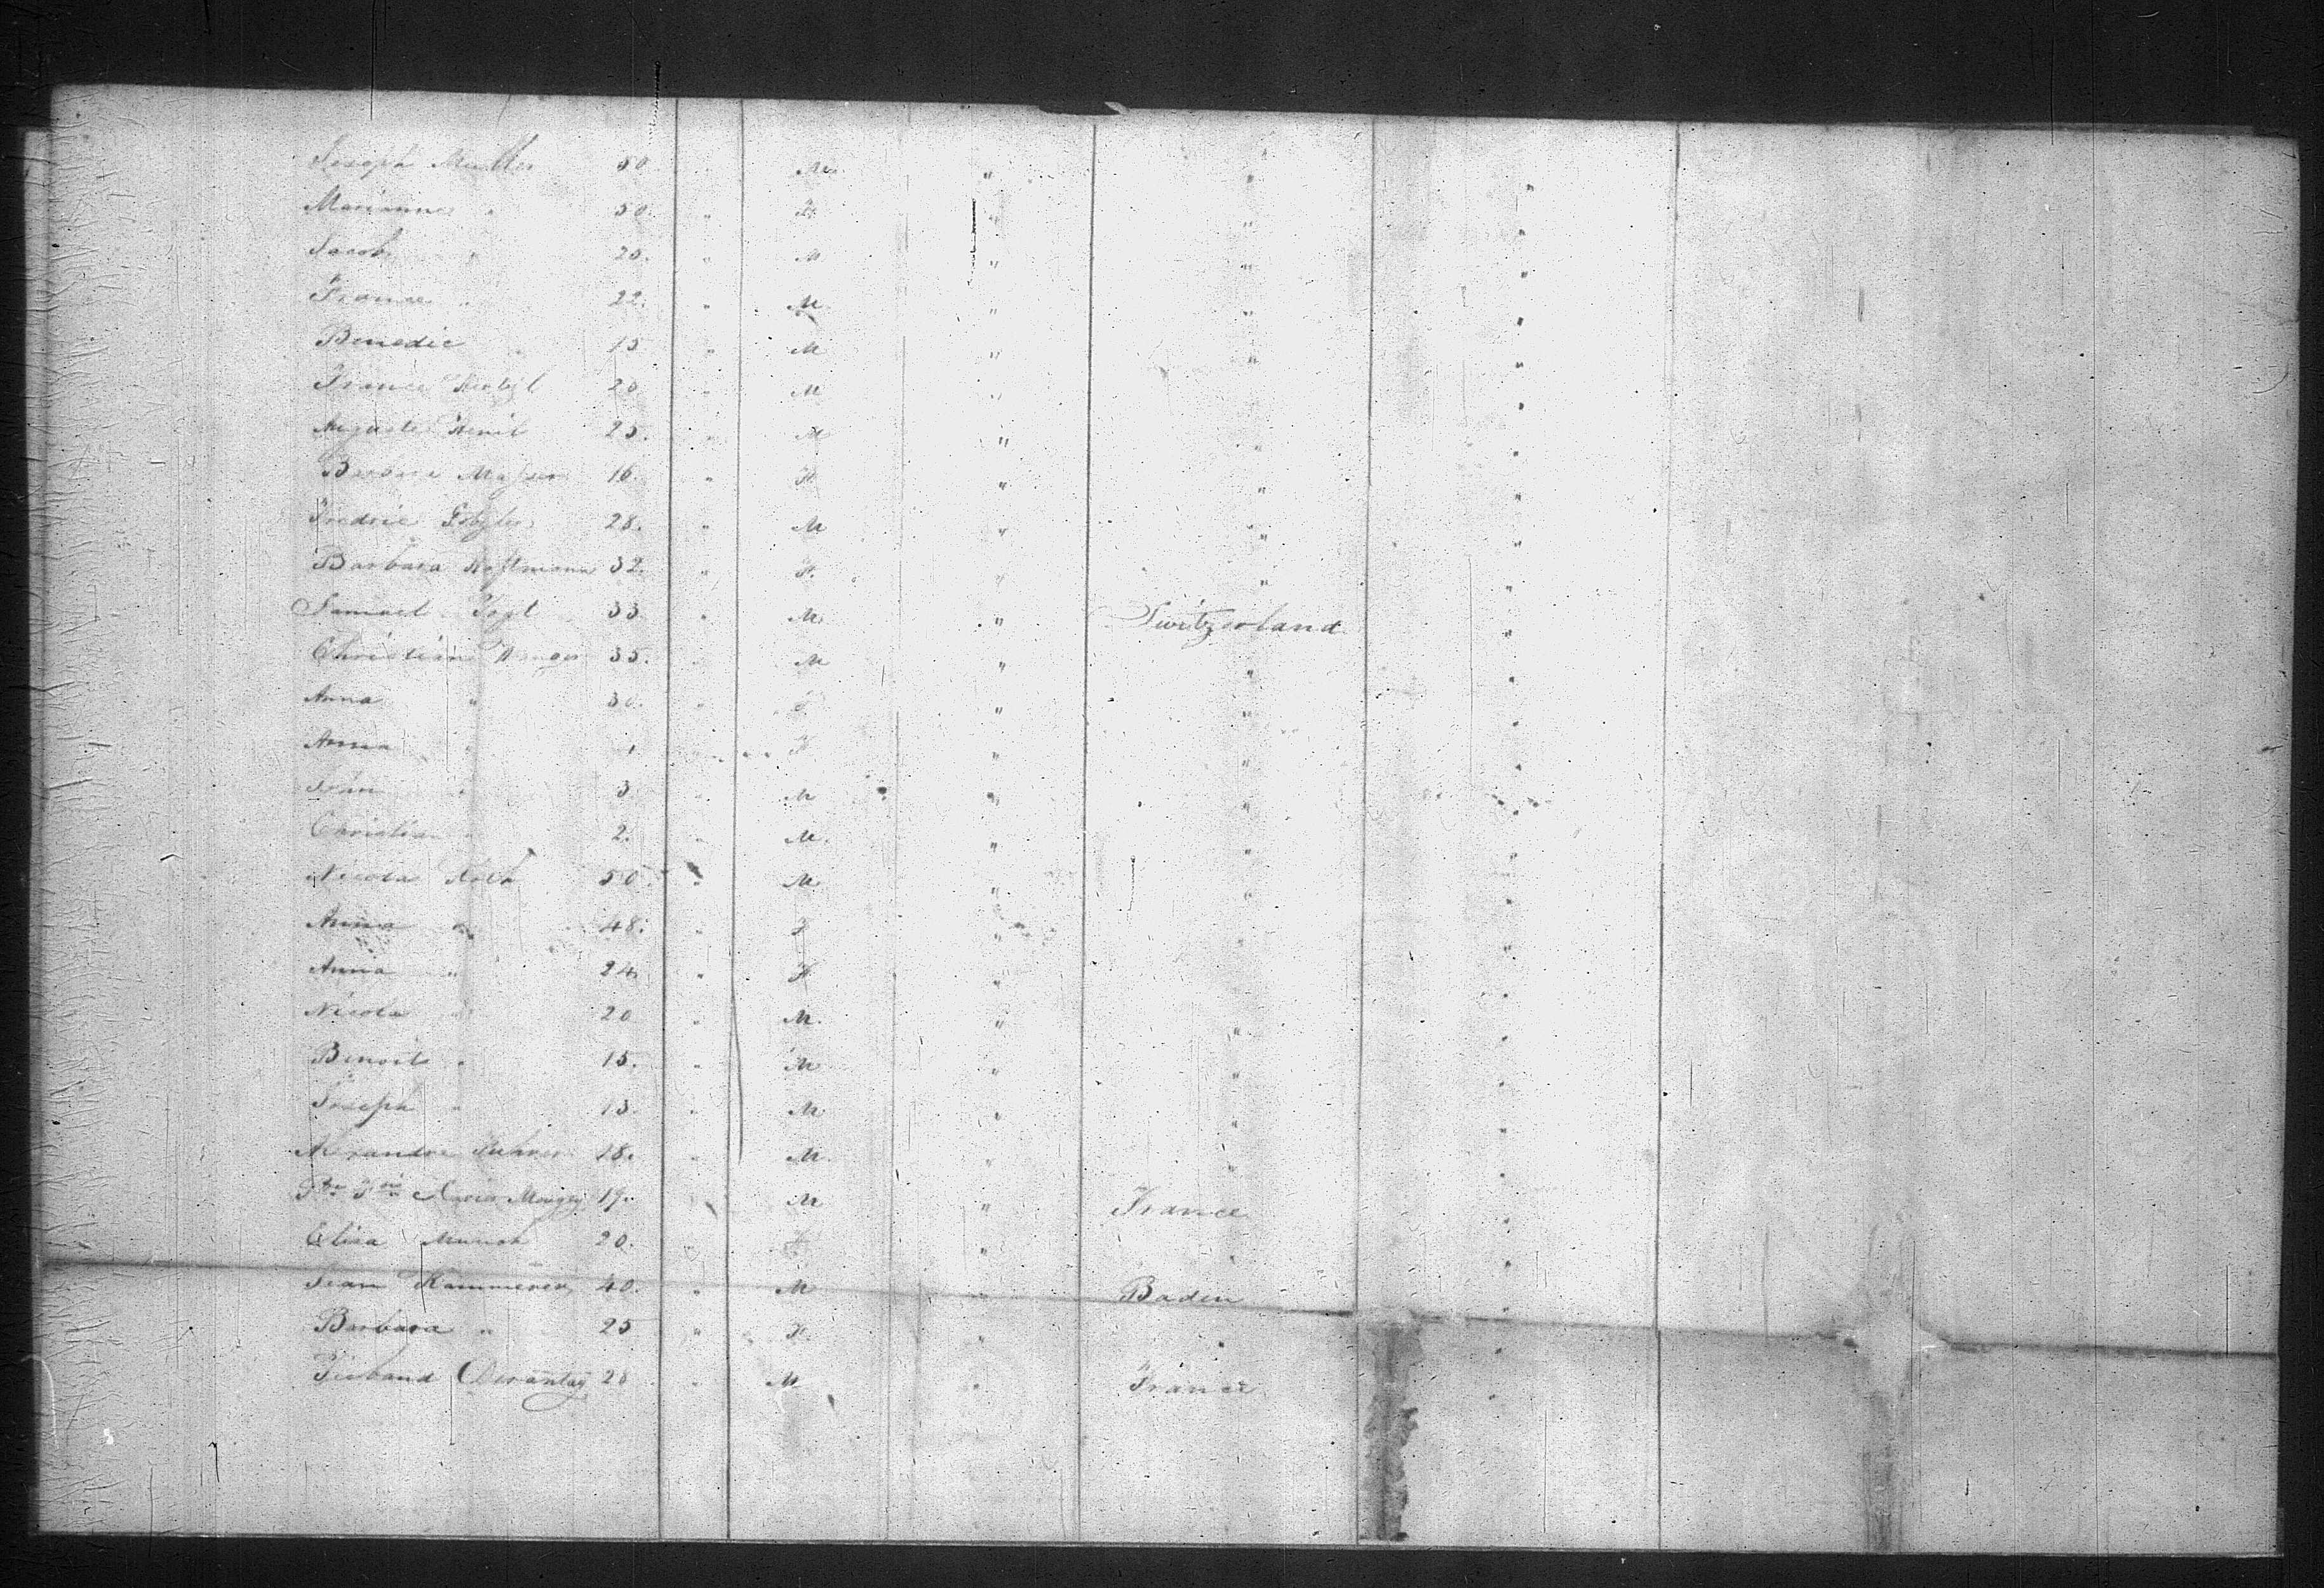 Joseph Muller 50. " M. " " "
Marianne " 50. " F. " " "
Jacob " 25. " M " " "
France " 22. " M. " " "
Benedic " 15 " M " " "
France 20 " M " " "
Auguste 25. " M " " "
Barbara 16. " F " " "
Fredric 28. " M " " "
Barbara Hoffmann 32. " F. " " "
Samuel Vogt 33 " M. " Switzerland "
Christian 35. " M " " "
Anna " 30. " F " " "
Anna " 1 " F " " "
" 3 " M " " "
Christian " 2. " M. " " "
Nicola Roth 50 " M. " " "
Anna " 48. " F " " "
Anna " 24 " F " " "
Nicola " 20 " M. " " "
Benoit " 15. " M " " "
Joseph " 13. " M " " "
Alexandre 18. " M. " " "
19. " M " France "
Elisa Munch 20. " F " " "
Jean Kammerer 40. " M " Baden "
Barbara " 25 " F. " " "
28 " M " France "